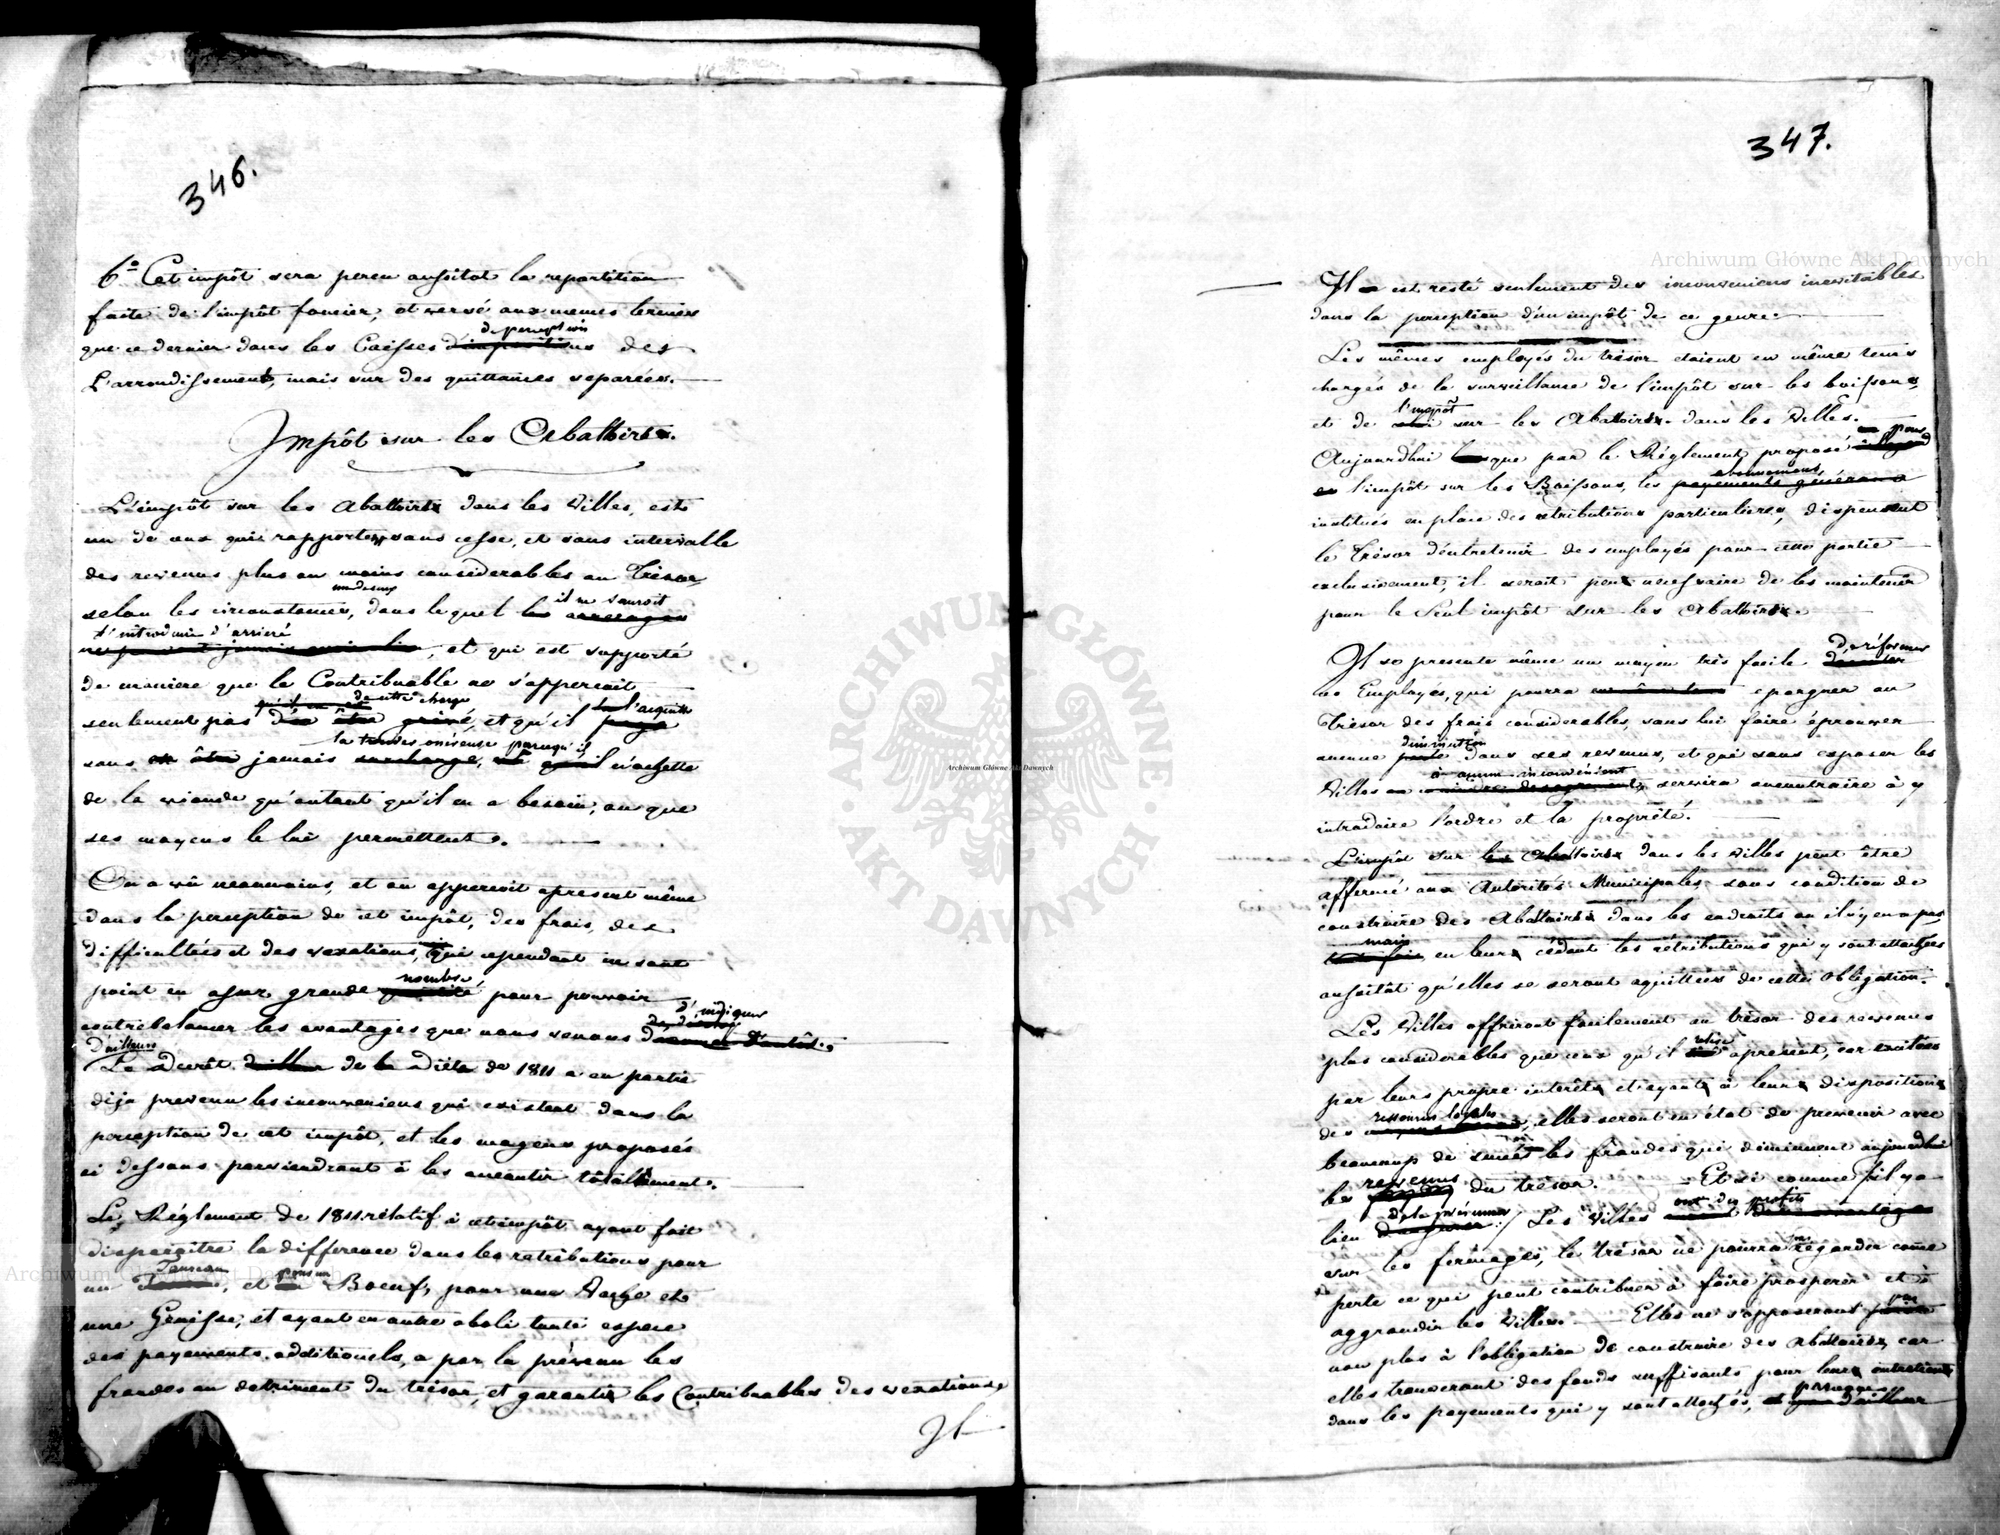 346.
6º Cet impôt sera percu aussitot la repartition
faite de l'impôt foncier, et versé aux memes termes
de perception
que ce dernier dans les Caisses d'impositions des
L'arrondissement, mais sur des quittances separées.
Impôt sur les Abattoirs.
L'impôt sur les abattoirs dans les Villes, est
un de ceux qui rapportent sans cesse, et sans intervalle
des revenus plus ou moins considerables au Trésor
selon les circonstances, dans lequel les arrerages
il ne sauroit
s'introduire d'arrieré
ne peuvent jamais avoir lieu, et qui est supporté
de maniere que le Contribuable ne s'appercoit
de cette charge
seulement pas d'en être grévé, et qu'il paye
l'acquitte
la trouver onéreuse parcequ'il
sans en être jamais surchargé, vû qu'il n'achette
de la viande qu'autant qu'il en a besoin, ou que
ses moyens le lui permettent.
On a vû neanmoins, et on appercoit apresent même
dans la perception de cet impôt, des frais, des
difficultées et des vexations, qui cependant ne sont
nombre
point en assez grande quantité pour pouvoir
d'indiquer
contrebalancer les avantages que nous venons
D'ailleurs
Le decrêt d'ailleur de la Diéte de 1811 a en partie
deja prevenu les inconveniens qui existent dans la
perception de cet impôt, et les moyens proposés
ci dessous parviendront à les aneantir tôtallement.
Le Réglement de 1811 rélatif à cet impôt ayant fait
disparaître la difference dans les retributions pour
Taureau
pour un
un Taureau, et un Boeuf, pour une Vache et
une Genisse, et ayant en outre aboli toute espece
des payements additionels, a par la prévenu les
fraudes au detriment du trésor, et garantie les Contribuables des vexations.
Il
347.
Il est resté seulement des inconveniens inevitables
dans la perception d'un impôt de ce genre.
Les mêmes employés du trésor etaient en même tems
chargés de la surveillance de l'impôt sur les boissons,
l'impôt
et de celui sur les Abattoirs dans les Villes.
pour
Aujourdhui que par le Réglement proposé à l'égard
abonnemens
l'impôt sur les Boissons, les payements généraux
institués en place des retributions particulieres, dispensent
le Trésor d'entretenir des employés pour cette partie
exclusivement, il serait peu necessaire de les maintenir
pour le seul impôt sur les Abattoirs.
Il se presente même un moyen très facile
de réformer
ces Employés, qui pourra en même tems epargner au
Trésor des frais considerables, sans lui faire éprouver
diminution
aucune perte dans ses revenus, et qui sans exposer les
à aucun inconvénient
Villes desagrements, servira aucontraire à y
introduire l'ordre et la propreté.
L'impôt sur les Abattoirs dans les villes peut être
affermé aux Autorités Municipales sous condition de
construire des Abattoirs dans les endroits ou il n'y en a pas
mais
en leur cédant les rétributions qui y sont attachées
aussitôt qu'elles se seront aquittées de cette obligation.
Les Villes offriront facilement au trésor des revenus
retire
plus considerables que ceux qu'il apresent, car excitées
par leurs propre interêts et ayant à leur disposition
ressources locales
des, elles seront en état de prevenir avec
beaucoup de succès les fraudes que diminuent aujourdhui
revenus
les du trésor. Et si comme il y a
de le présumer
ont des profits
lieu d'esperer / Les Villes
sur les fermages, le trésor ne pourra regarder come
perte ce qui peut contribuer à faire prosperer et à
aggrandir les Villes. Elles ne s'opposeront
non plus à l'obligation de construire des Abattoirs, car
elles trouveront des fonds suffisants pour leur entretient
parceque
dans les payements qui y sont attachés, d'ailleur
Archiwum Główne Akt Dawnych
ARCHIWUM GŁÓWNE · AKT DAWNYCH ·
Archiwum Główne Akt Dawnych
Archiwum Główne Akt Dawnych